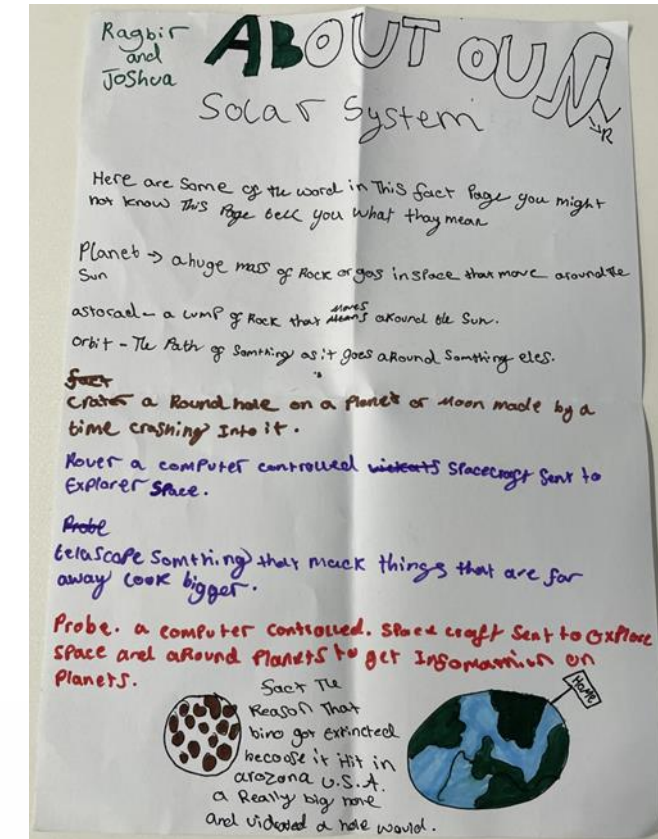 Ragbir
and
Joshua
ABOUT OUR
Solar System
Here are some of the word in This fact Page you might
not know This Page tell you what thay mean
Planet → a huge mass of Rock or gas in space that move around the
Sun
astorael - a lump of Rock that moves around the Sun.
Orbit - The Path of Somthing as it goes aRound Somthing eles.
fact
crater a Round hole on a Planet or Moon made by a
time crashing Into it.
Rover a computer controlled spacecraft Sent to
Explorer Space.
Probe
telascope Somthing that mack things that are far
away look bigger.
Probe. a computer controlled. Space craft Sent to Explore
Space and aRound Planets to get Infomamion on
Planets.
fact The
Reason That
bino got extincted
becoose it Hit in
arozona U.S.A.
a Really big
and a hole would.
HoMe